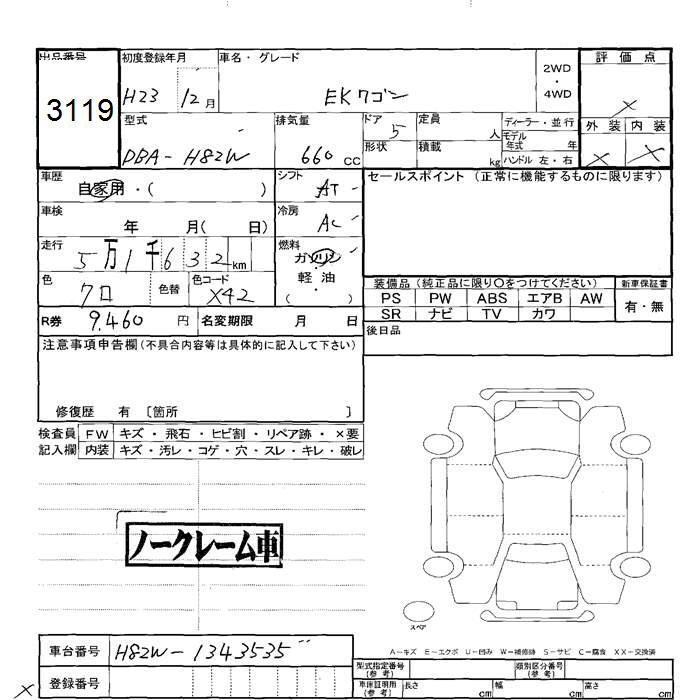 出品番号
3119
初度登録年月
H23 12月
車名・グレード
EKワゴン
2WD
・
4WD
評価点
×
型式
DBA-H82W
排気量
660 cc
ドア
5
定員
人
ディーラー・並行
モデル
年式 年
外装 内装
× ×
形状
積載
kg
ハンドル 左・右
車歴
自家用・( )
シフト
AT
セールスポイント (正常に機能するものに限ります)
車検
年 月( 日)
冷房
AC
走行
5万1千632km
燃料
ガソリン
・
軽油
( )
色
クロ
色替
色コード
X42
装備品 (純正品に限り〇をつけてください)
新車保証書
PS PW ABS エアB AW
有・無
SR ナビ TV カワ
R券
9.460 円
名変期限 月 日
後日品
注意事項申告欄(不具合内容等は具体的に記入して下さい)
修復歴 有 〔箇所 〕
検査員 FW キズ・飛石・ヒビ割・リペア跡・×要
記入欄 内装 キズ・汚レ・コゲ・穴・スレ・キレ・破レ
ノークレーム車
スペア
A-キズ E-エクボ U-凹み W-補修跡 S-サビ C-腐食 XX-交換済
車台番号
H82W-1343535
登録番号
型式指定番号
(参考)
類別区分番号
(参考)
車庫証明用
(参考)
長さ cm
幅 cm
高さ cm
×